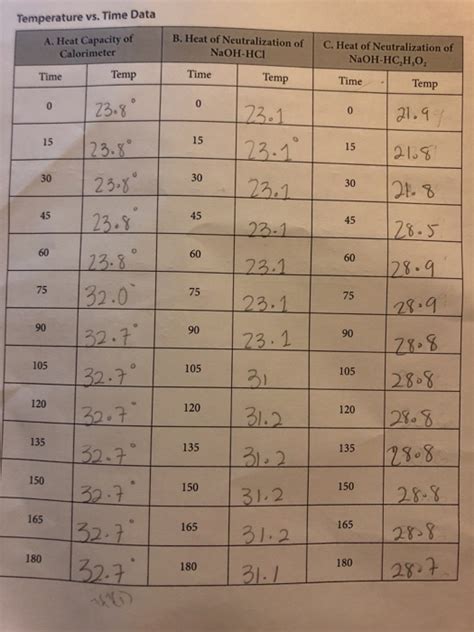 Temperature vs. Time Data
A. Heat Capacity of Calorimeter B. Heat of Neutralization of NaOH-HCl C. Heat of Neutralization of NaOH-HC₂H₃O₂
Time Temp Time Temp Time Temp
0 23.8° 0 23.1 0 21.9
15 23.8° 15 23.1° 15 21.8
30 23.8° 30 23.1 30 21.8
45 23.8° 45 23.1 45 28.5
60 23.8° 60 23.1 60 28.9
75 32.0° 75 23.1 75 28.9
90 32.7° 90 23.1 90 28.8
105 32.7° 105 31 105 28.8
120 32.7° 120 31.2 120 28.8
135 32.7° 135 31.2 135 28.8
150 32.7° 150 31.2 150 28.8
165 32.7° 165 31.2 165 28.8
180 32.7° 180 31.1 180 28.7